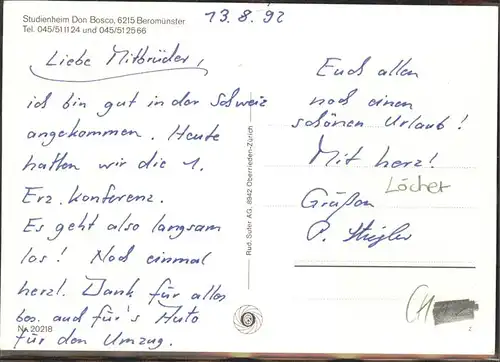 Studienheim Don Bosco, 6215 Beromünster
Tel. 045/51 11 24 und 045/51 25 66
13.8.92
Liebe Mitbrüder,
ich bin gut in der Schweiz
angekommen. Heute
hatten wir die 1.
Erz. Konferenz.
Es geht also langsam
los! Noch einmal
herzl. Dank für alles
bes. auch für's Auto
für den Umzug.
Nr. 20218
Rud. Suter AG, 8942 Oberrieden-Zürich
Euch allen
noch einen
schönen Urlaub!
Mit herzl.
Grüßen
P. Stiegler
Löcher
CH